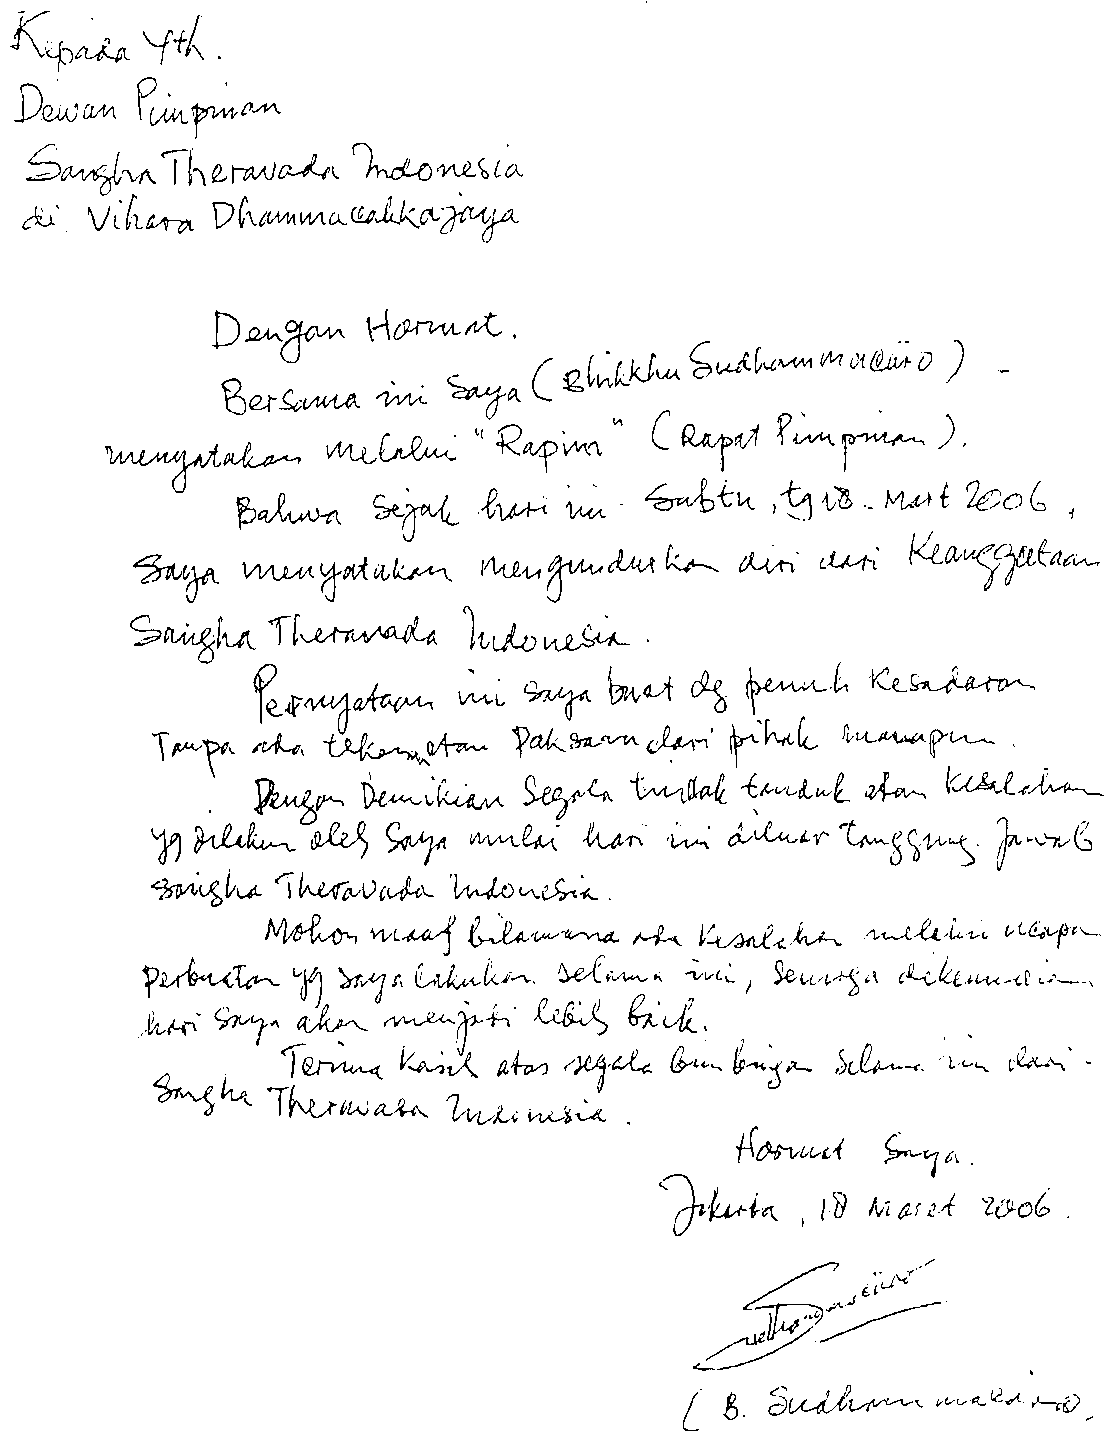 Kepada Yth.
Dewan Pimpinan
Sangha Theravada Indonesia
di Vihara Dhammacakkajaya
Dengan Hormat.
Bersama ini Saya (Bhikkhu Sudhammacāro)
menyatakan melalui "Rapim" (Rapat Pimpinan).
Bahwa Sejak hari ini Sabtu, tg 18 - Mart 2006,
Saya menyatakan mengundurkan diri dari Keanggotaan
Sangha Theravada Indonesia.
Pernyataan ini saya buat dg penuh Kesadaran
Tanpa ada tekanan atau Paksaan dari pihak manapun.
Dengan Demikian Segala tindak tanduk atau Kesalahan
yg dilakun oleh Saya mulai hari ini diluar tanggung Jawab
Sangha Theravada Indonesia.
Mohon maaf bilamana ada Kesalahan melalui ucapa
perbuatan yg saya lakukan selama ini, Semoga dikemudian
hari Saya akan menjadi lebih baik.
Terima Kasih atas segala bimbingan Selama ini dari -
Sangha Theravada Indonesia.
Hormat Saya.
Jakarta, 18 Maret 2006.
(B. Sudhammacaro)